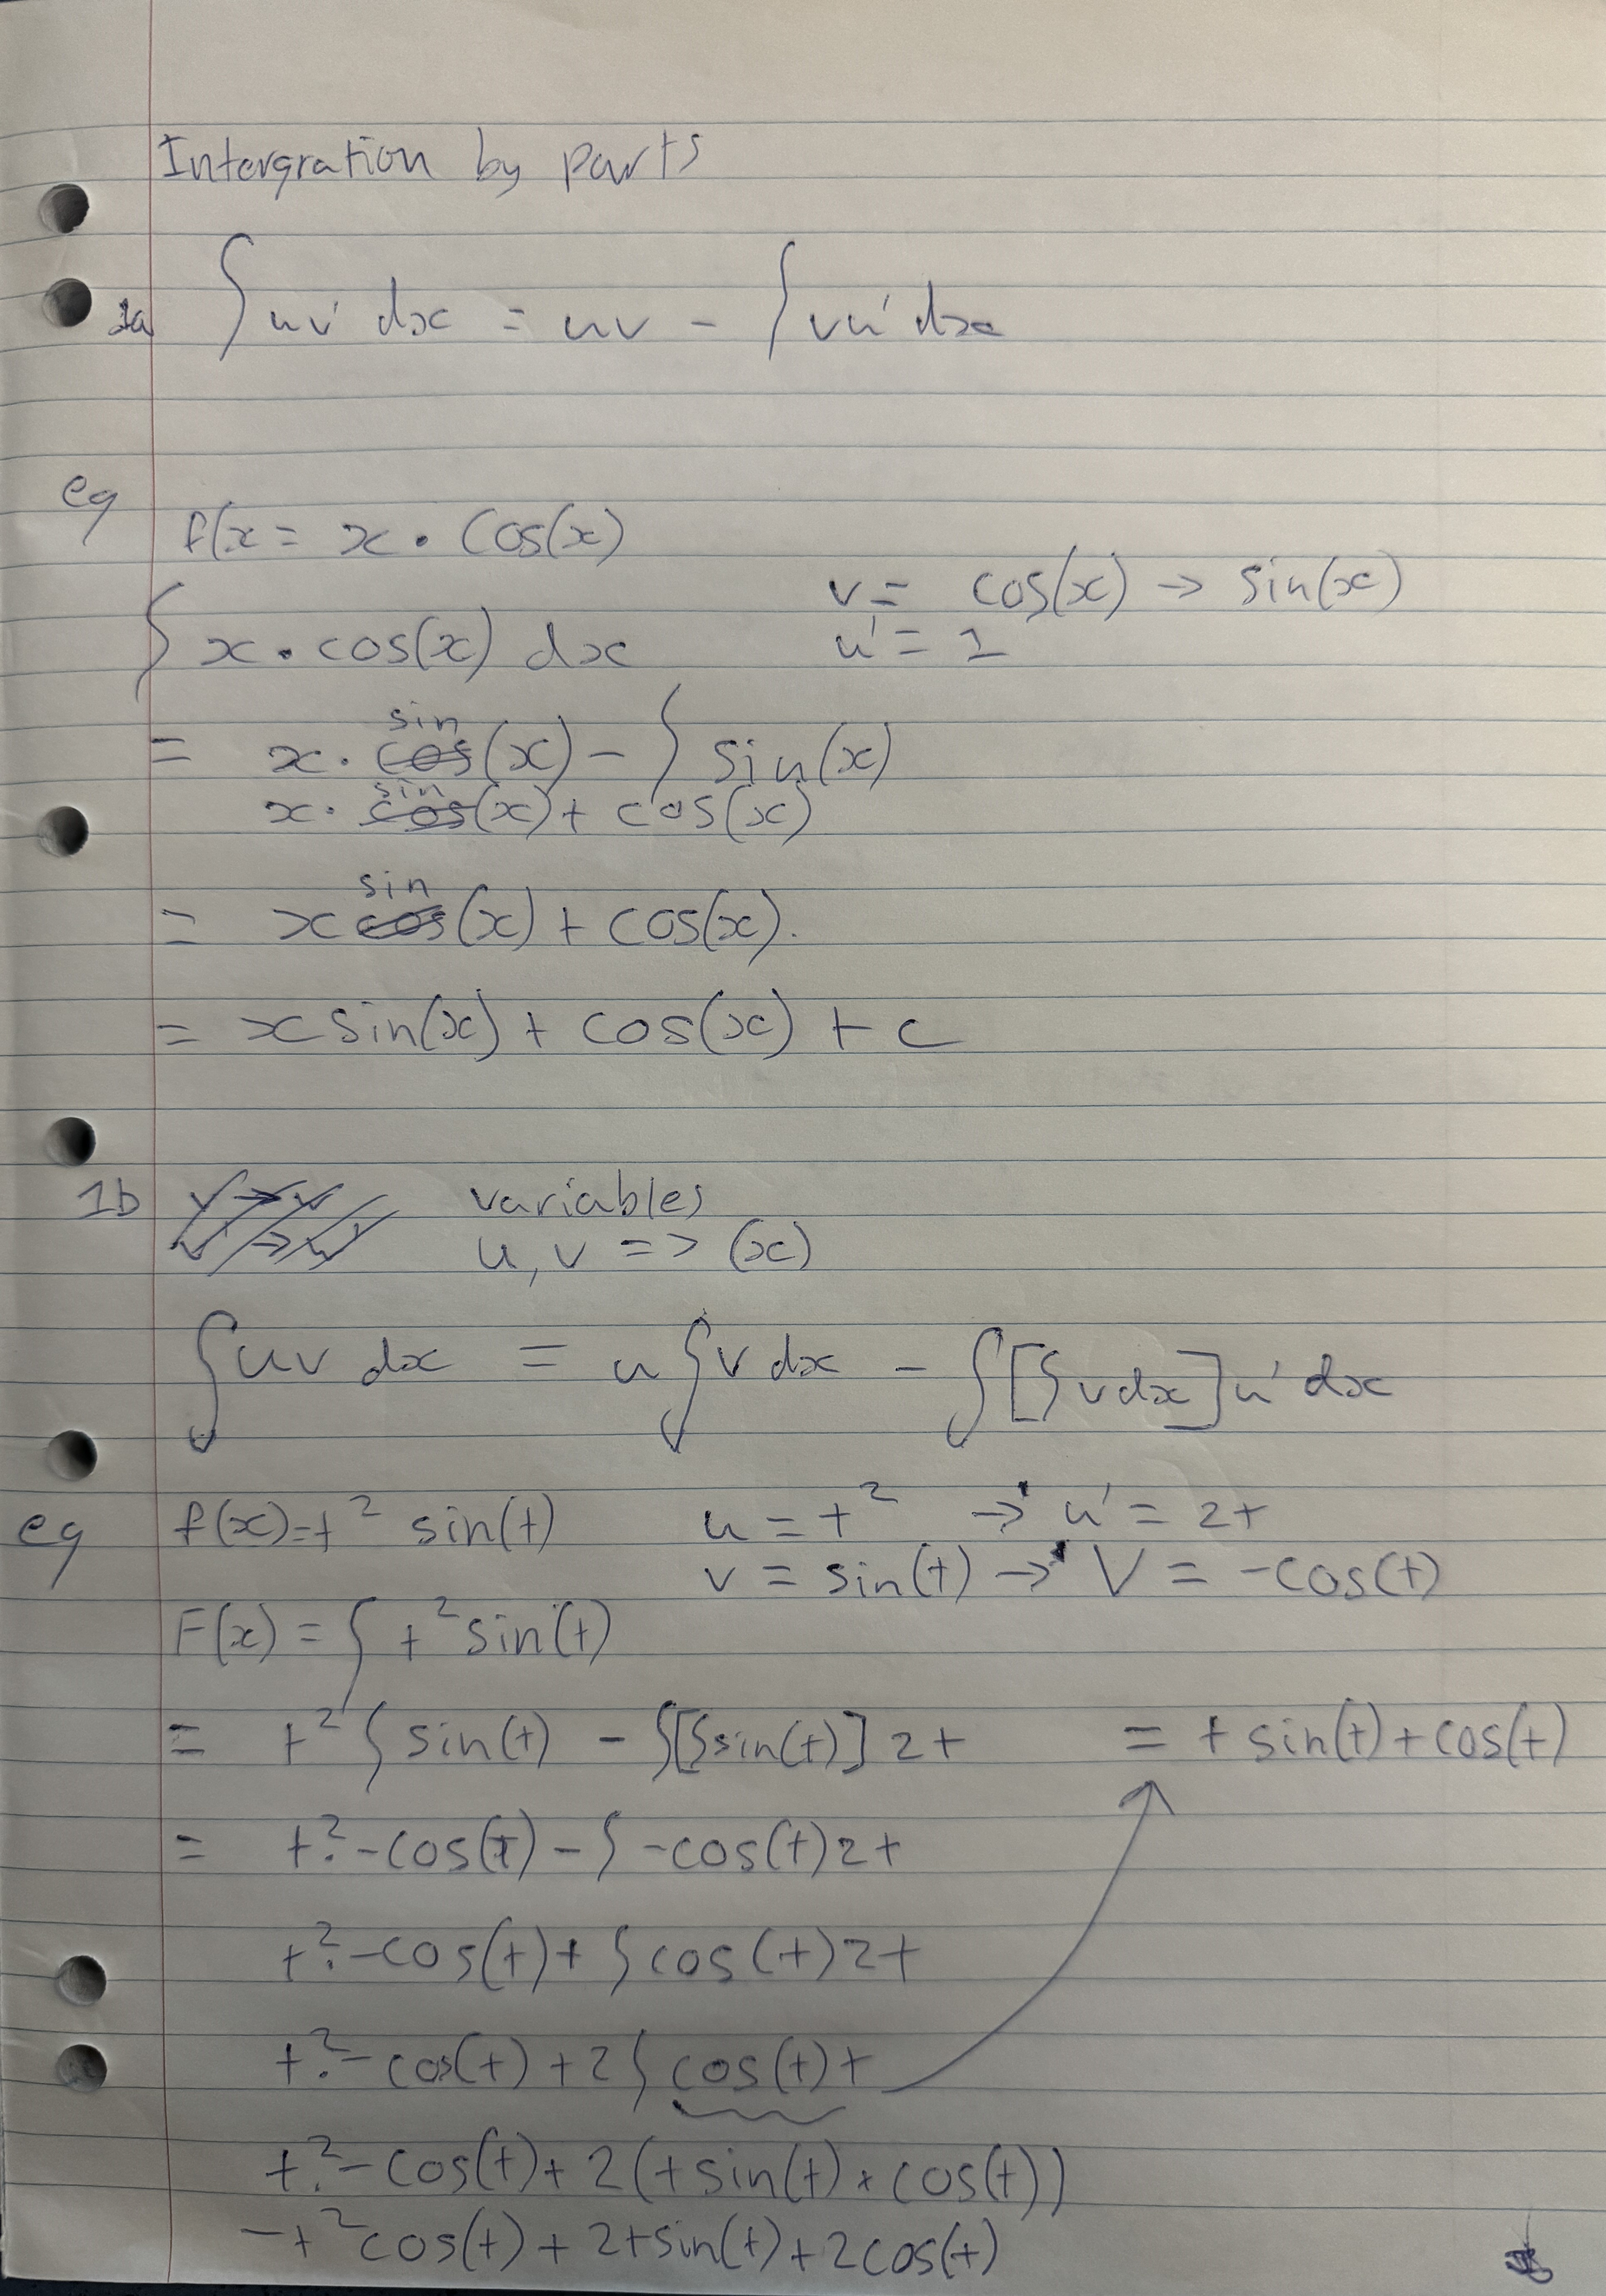 Intergration by parts
1a ∫ uv' dx = uv - ∫ vu' dx
eg
f(x = x · cos(x)
v = cos(x) → sin(x)
∫ x · cos(x) dx
u' = 1
= x · cos sin (x) - ∫ sin(x)
x · cos sin (x) + cos(x)
= x cos sin (x) + cos(x).
= x sin(x) + cos(x) + c
1b variables
u, v => (x)
∫ uv dx = u ∫ v dx - ∫ [∫ v dx] u' dx
eg f(x)=t² sin(t) u = t² → u' = 2t
v = sin(t) → V = -cos(t)
F(x) = ∫ t² sin(t)
= t² ∫ sin(t) - ∫[∫sin(t)] 2t = t sin(t) + cos(t)
= t²·-cos(t) - ∫ -cos(t)2t
t²·-cos(t) + ∫ cos(t)2t
t²·-cos(t) + 2 ∫ cos(t)t
t²·-cos(t) + 2(t sin(t) + cos(t))
-t²cos(t) + 2t sin(t) + 2cos(t)